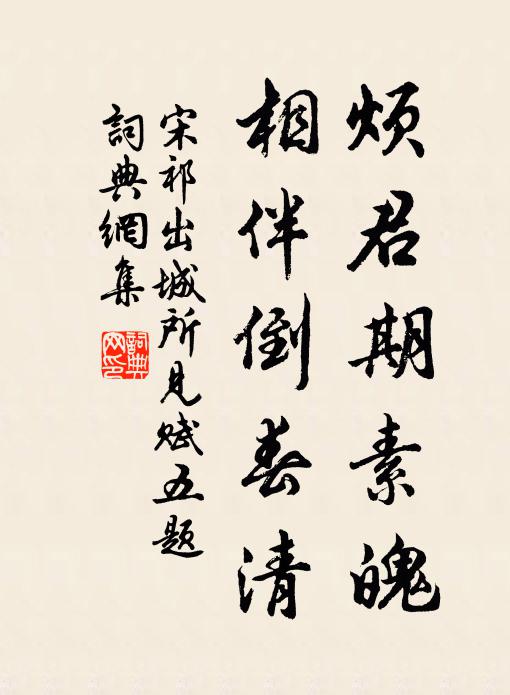 烦君期素魄
相伴倒春清
宋祁出城所見赋五题
詞典網集
詞典網印